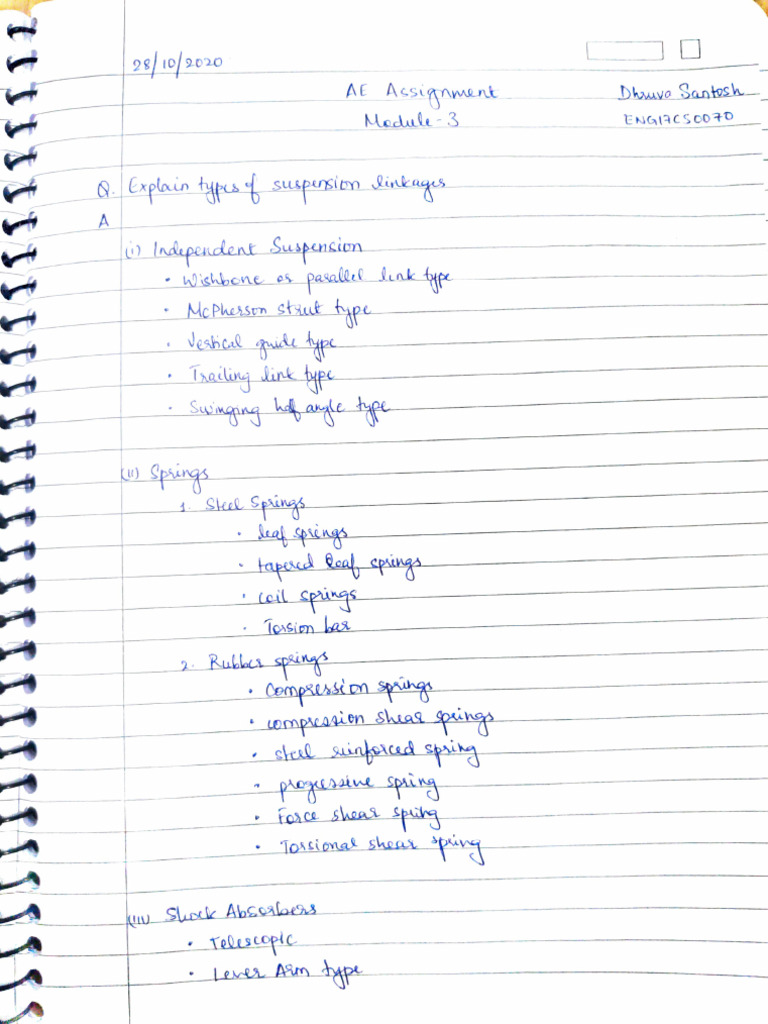 28/10/2020
AE Assignment Dhruva Santosh
Module-3 ENG17CS0070
Q. Explain types of suspension linkages
A
(i) Independent Suspension
• Wishbone or parallel link type
• McPherson strut type
• Vertical guide type
• Trailing link type
• Swinging half angle type
(ii) Springs
1. Steel Springs
• leaf springs
• tapered leaf springs
• coil springs
• Torsion bar
2. Rubber springs
• Compression springs
• compression shear springs
• steel reinforced spring
• progressive spring
• Force shear spring
• Torsional shear spring
(iii) Shock Absorbers
• Telescopic
• Lever Arm type